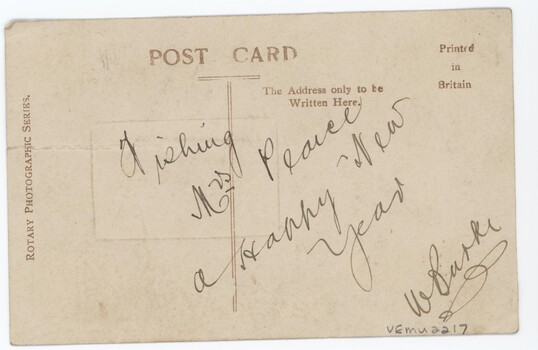 POST CARD
Printed
in
Britain
The Address only to be
Written Here.
ROTARY PHOTOGRAPHIC SERIES.
Wishing
Mrs Pearce
a Happy New
Year
W Burke
VEmu2217